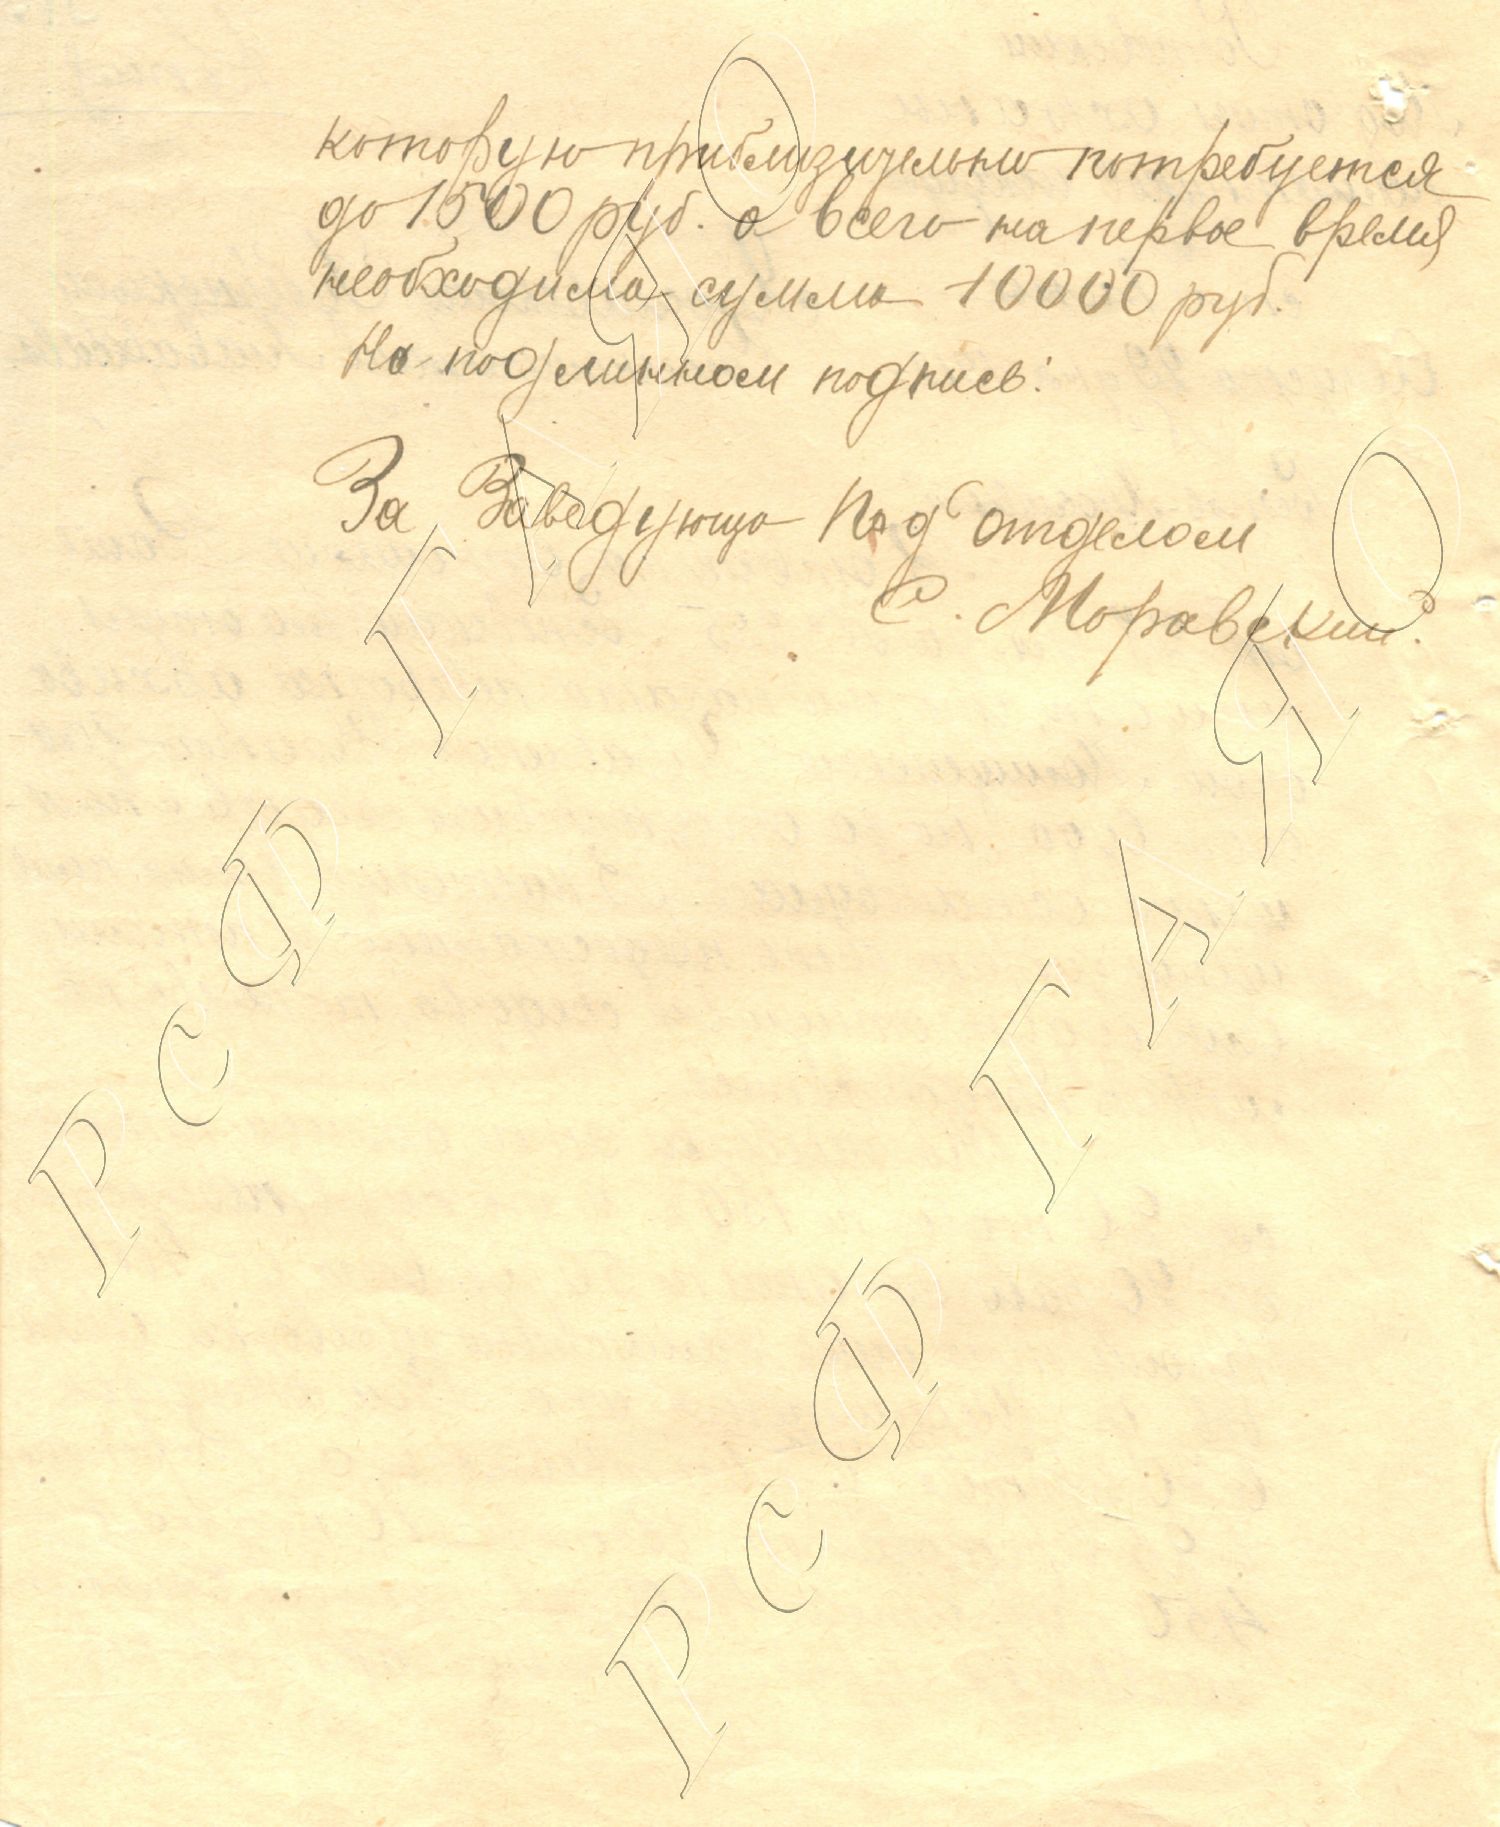 которую приблизительно потребуется
до 1500 руб. а всего на первое время
необходима сумма 10000 руб.
На подлинном подпись:
За Заведующа Под отделом
С. Моравский.
РСФ ГАЯО
РСФ ГАЯО